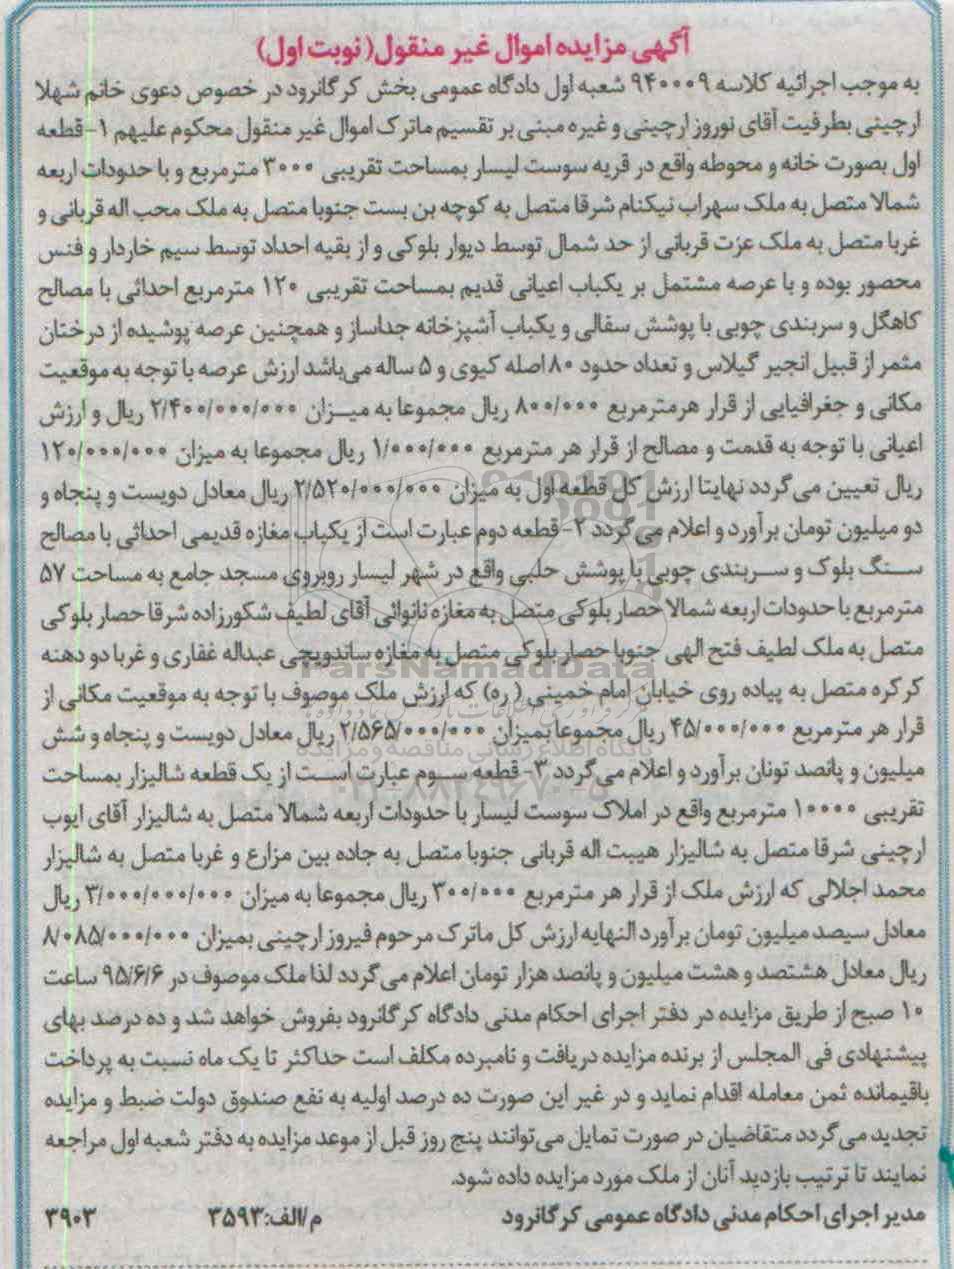 آگهی مزایده اموال غیر منقول (نوبت اول)
به موجب اجرائیه کلاسه ۹۴۰۰۰۹ شعبه اول دادگاه عمومی بخش کرگانرود در خصوص دعوی خانم شهلا
ارچینی بطرفیت آقای نوروز ارچینی و غیره مبنی بر تقسیم ماترک اموال غیر منقول محکوم علیهم ۱-قطعه
اول بصورت خانه و محوطه واقع در قریه سوست لیسار بمساحت تقریبی ۳۰۰۰ مترمربع و با حدودات اربعه
شمالا متصل به ملک سهراب نیکنام شرقا متصل به کوچه بن بست جنوبا متصل به ملک محب اله قربانی و
غربا متصل به ملک عزت قربانی از حد شمال توسط دیوار بلوکی و از بقیه احداد توسط سیم خاردار و فنس
محصور بوده و با عرصه مشتمل بر یکباب اعیانی قدیم بمساحت تقریبی ۱۲۰ مترمربع احداثی با مصالح
کاهگل و سربندی چوبی با پوشش سفالی و یکباب آشپزخانه جداساز و همچنین عرصه پوشیده از درختان
مثمر از قبیل انجیر گیلاس و تعداد حدود ۸۰ اصله کیوی و ۵ ساله می‌باشد ارزش عرصه با توجه به موقعیت
مکانی و جغرافیایی از قرار هرمترمربع ۸۰۰/۰۰۰ ریال مجموعا به میزان ۲/۴۰۰/۰۰۰/۰۰۰ ریال و ارزش
اعیانی با توجه به قدمت و مصالح از قرار هر مترمربع ۱/۰۰۰/۰۰۰ ریال مجموعا به میزان ۱۲۰/۰۰۰/۰۰۰
ریال تعیین می‌گردد نهایتا ارزش کل قطعه اول به میزان ۲/۵۲۰/۰۰۰/۰۰۰ ریال معادل دویست و پنجاه و
دو میلیون تومان برآورد و اعلام می‌گردد ۲-قطعه دوم عبارت است از یکباب مغازه قدیمی احداثی با مصالح
سنگ بلوک و سربندی چوبی با پوشش حلبی واقع در شهر لیسار روبروی مسجد جامع به مساحت ۵۷
مترمربع با حدودات اربعه شمالا حصار بلوکی متصل به مغازه نانوائی آقای لطیف شکورزاده شرقا حصار بلوکی
متصل به ملک لطیف فتح الهی جنوبا حصار بلوکی متصل به مغازه ساندویچی عبداله غفاری و غربا دو دهنه
کرکره متصل به پیاده روی خیابان امام خمینی (ره) که ارزش ملک موصوف با توجه به موقعیت مکانی از
قرار هر مترمربع ۴۵/۰۰۰/۰۰۰ ریال مجموعا بمیزان ۲/۵۶۵/۰۰۰/۰۰۰ ریال معادل دویست و پنجاه و شش
میلیون و پانصد تونان برآورد و اعلام می‌گردد ۳- قطعه سوم عبارت است از یک قطعه شالیزار بمساحت
تقریبی ۱۰۰۰۰ مترمربع واقع در املاک سوست لیسار با حدودات اربعه شمالا متصل به شالیزار آقای ایوب
ارچینی شرقا متصل به شالیزار هیبت اله قربانی جنوبا متصل به جاده بین مزارع و غربا متصل به شالیزار
محمد اجلالی که ارزش ملک از قرار هر مترمربع ۳۰۰/۰۰۰ ریال مجموعا به میزان ۳/۰۰۰/۰۰۰/۰۰۰ ریال
معادل سیصد میلیون تومان برآورد النهایه ارزش کل ماترک مرحوم فیروز ارچینی بمیزان ۸/۰۸۵/۰۰۰/۰۰۰
ریال معادل هشتصد و هشت میلیون و پانصد هزار تومان اعلام می‌گردد لذا ملک موصوف در ۹۵/۶/۶ ساعت
۱۰ صبح از طریق مزایده در دفتر اجرای احکام مدنی دادگاه کرگانرود بفروش خواهد شد و ده درصد بهای
پیشنهادی فی المجلس از برنده مزایده دریافت و نامبرده مکلف است حداکثر تا یک ماه نسبت به پرداخت
باقیمانده ثمن معامله اقدام نماید و در غیر این صورت ده درصد اولیه به نفع صندوق دولت ضبط و مزایده
تجدید می‌گردد متقاضیان در صورت تمایل می‌توانند پنج روز قبل از موعد مزایده به دفتر شعبه اول مراجعه
نمایند تا ترتیب بازدید آنان از ملک مورد مزایده داده شود.
مدیر اجرای احکام مدنی دادگاه عمومی کرگانرود م/الف:۳۵۹۳ ۳۹۰۳
ParsNamadData
پایگاه اطلاع رسانی مناقصه و مزایده